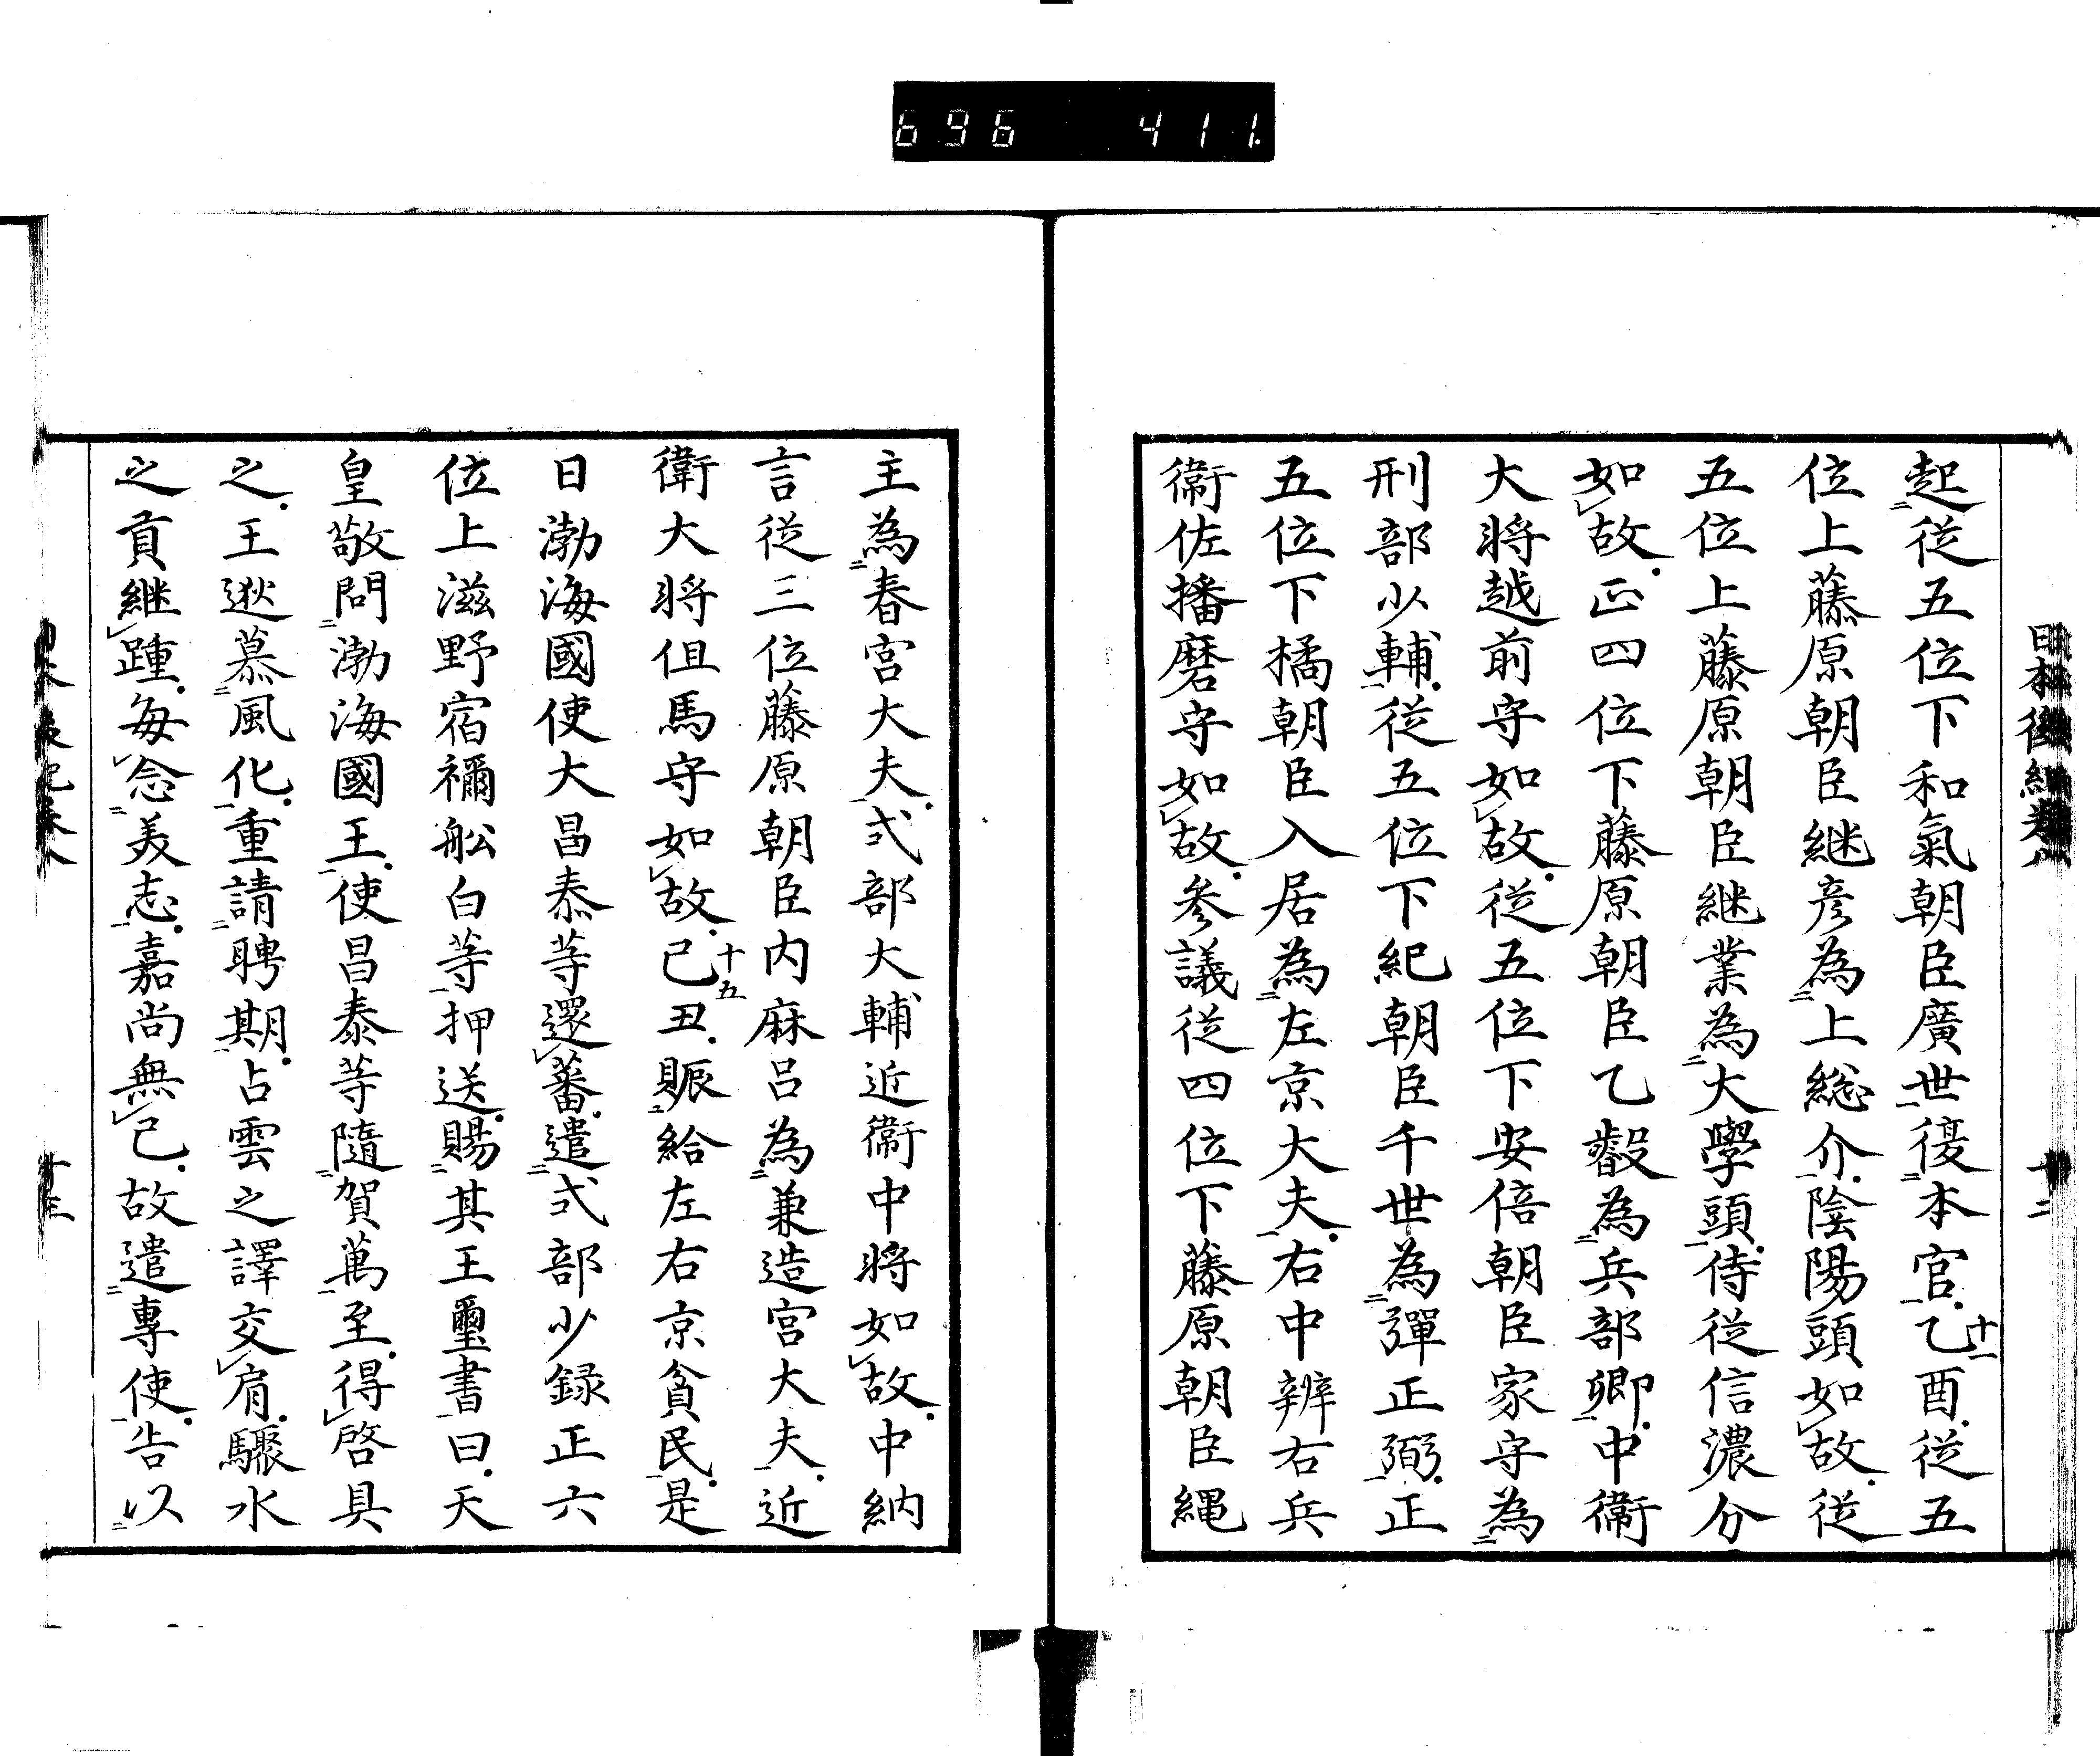 696 411
日本後紀卷八
起從五位下和氣朝臣廣世復本官乙酉從五
十一
位上藤原朝臣継彦為上総介陰陽頭如故從
五位上藤原朝臣継業為大學頭侍從信濃介
如故正四位下藤原朝臣乙叡為兵部卿中衞
大将越前守如故從五位下安倍朝臣家守為
刑部少輔從五位下紀朝臣千世為彈正弼正
五位下橘朝臣入居為左京大夫右中辨右兵
衞佐播磨守如故参議從四位下藤原朝臣縄
主為春宮大夫式部大輔近衞中将如故中納
言從三位藤原朝臣内麻呂為兼造宮大夫近
衛大将但馬守如故己丑賑給左右京貧民是
十五
日渤海國使大昌泰等還蕃遣式部少録正六
位上滋野宿禰船白等押送賜其王璽書曰天
皇敬問渤海國王使昌泰等隨賀萬至得啓具
之王逖慕風化重請聘期占雲之譯交肩驟水
之貢継踵毎念美志嘉尚無已故遣專使告以